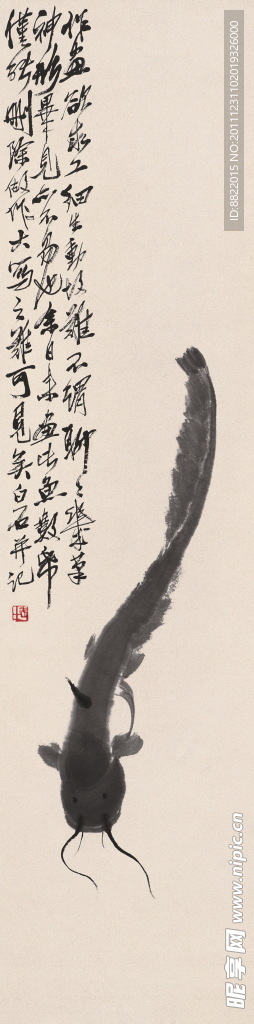 作画欲求工细生动故难不谓聊聊几笔
神形毕见亦不易也余日来画此鱼数纸
仅能删除做作大写之难可见矣白石并记
ID:8822015 NO:20111231102019326000
昵享网 www.nipic.cn